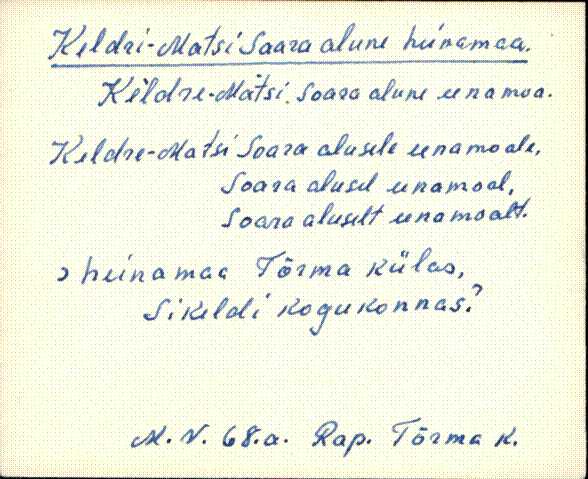 Keldri-Matsi Saara alune heinamaa.
Keldre-Matsi Soara alune einamoa.
Keldre-Matsi Soara alusele einamoale,
Soara alusel einamoal,
Soara aluselt einamoalt.
> heinamaa Tõrma külas,
Sikeldi kogukonnas?
M.V. 68.a. Rap. Tõrma k.